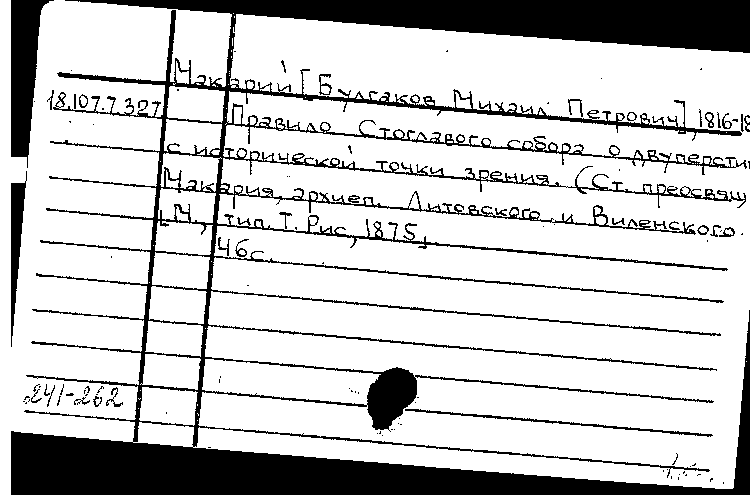 Макарий [Булгаков, Михаил Петрович], 1816-18
18.107.7.327 Правило Стоглавого собора о двуперстии
с исторической точки зрения. (Ст. преосвящ.
Макария, архиеп. Литовского и Виленского.
[М., тип. Т. Рис, 1875].
46с.
241-262